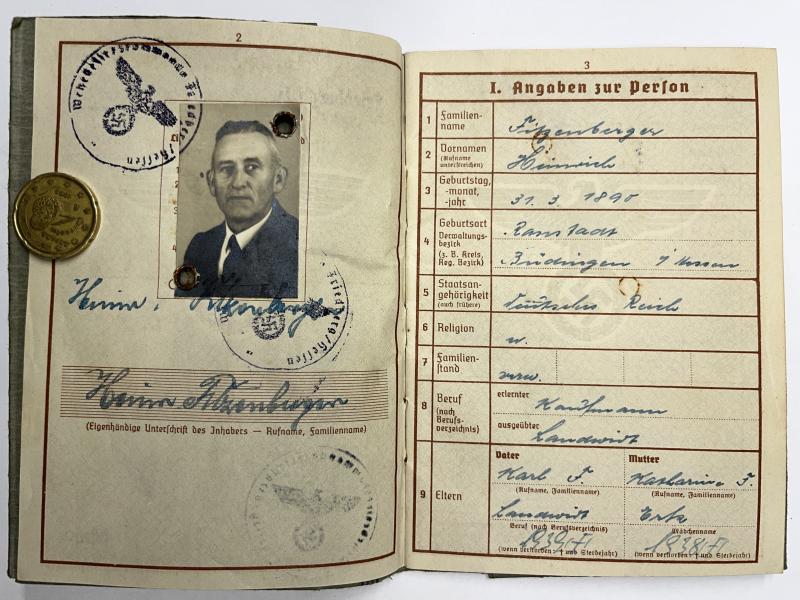 2
Wehrbezirkskommando Friedberg/Hessen
Heinr. Fitzenberger
Friedberg/Hessen
Heinr Fitzenberger
(Eigenhändige Unterschrift des Inhabers — Rufname, Familienname)
3
I. Angaben zur Person
1 Familien-
name
Fitzenberger
2 Vornamen
(Rufname
unterstreichen)
Heinrich
3 Geburtstag,
-monat,
-jahr
31. 3. 1890
4 Geburtsort
Verwaltungs-
bezirk
(z. B. Kreis,
Reg. Bezirk)
Ranstadt
Büdingen i/Hessen
5 Staatsan-
gehörigkeit
(auch frühere)
Deutsches Reich
6 Religion
7 Familien-
stand
verw.
8 Beruf
(nach
Berufs-
verzeichnis)
erlernter
Kaufmann
ausgeübter
Landwirt
9 Eltern
Vater
Mutter
Karl F
Katharina F
(Rufname, Familienname)
(Rufname, Familienname)
Landwirt
Beruf (nach Berufsverzeichnis)
Mädchenname
(wenn verstorben: † und Sterbejahr)
(wenn verstorben: † und Sterbejahr)